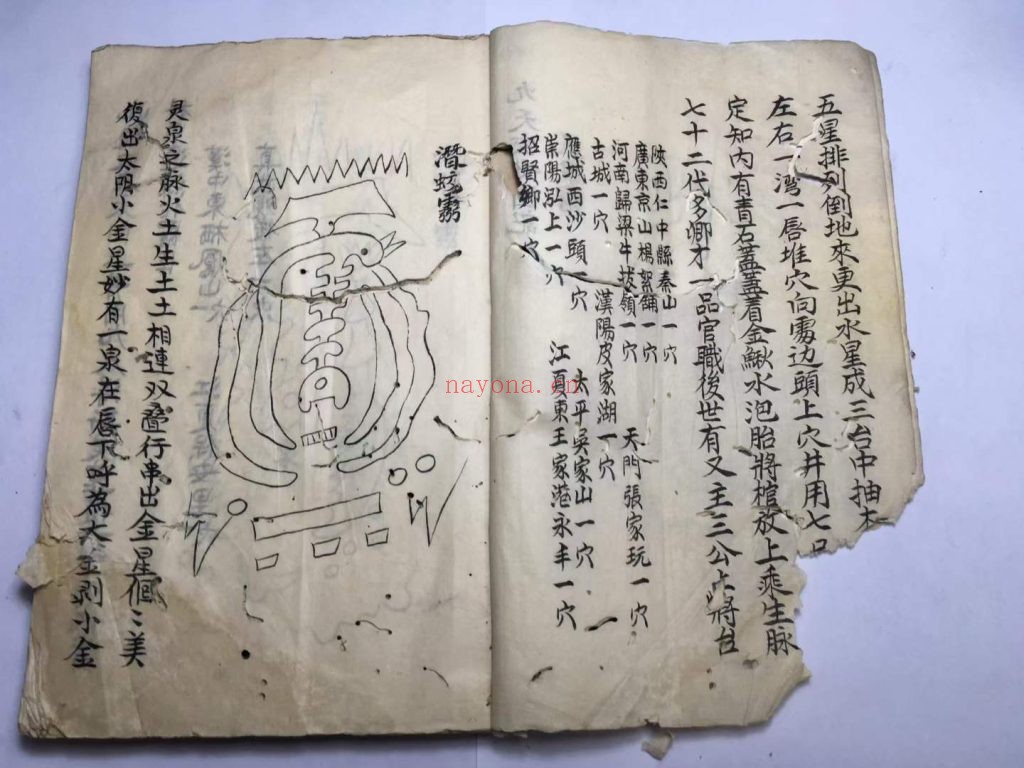 五星排列倒地來更出水星成三台中抽木
左右一湾一唇堆穴向雾边頭上穴井用七
定知內有青石蓋蓋着金鰍水泡胎將棺放上乘生脉
七十二代多卿才一品官職後世有又主三公
陝西仁中縣秦山一穴
廣東京山楊家鋪一穴 天門張家玩一穴
河南歸梁牛拔嶺一穴
古城一穴 漢陽皮家湖一穴 太平吳家山一穴
應城西沙頭一穴 江夏東王家港永丰一穴
崇陽泓上一穴
招賢鄉一穴
潛蛟雾
灵泉之脉火土生土土相連双叠行串出金星個二美
復出太阴小金星妙有一泉在唇下呼為大金剥小金
nayona.cn